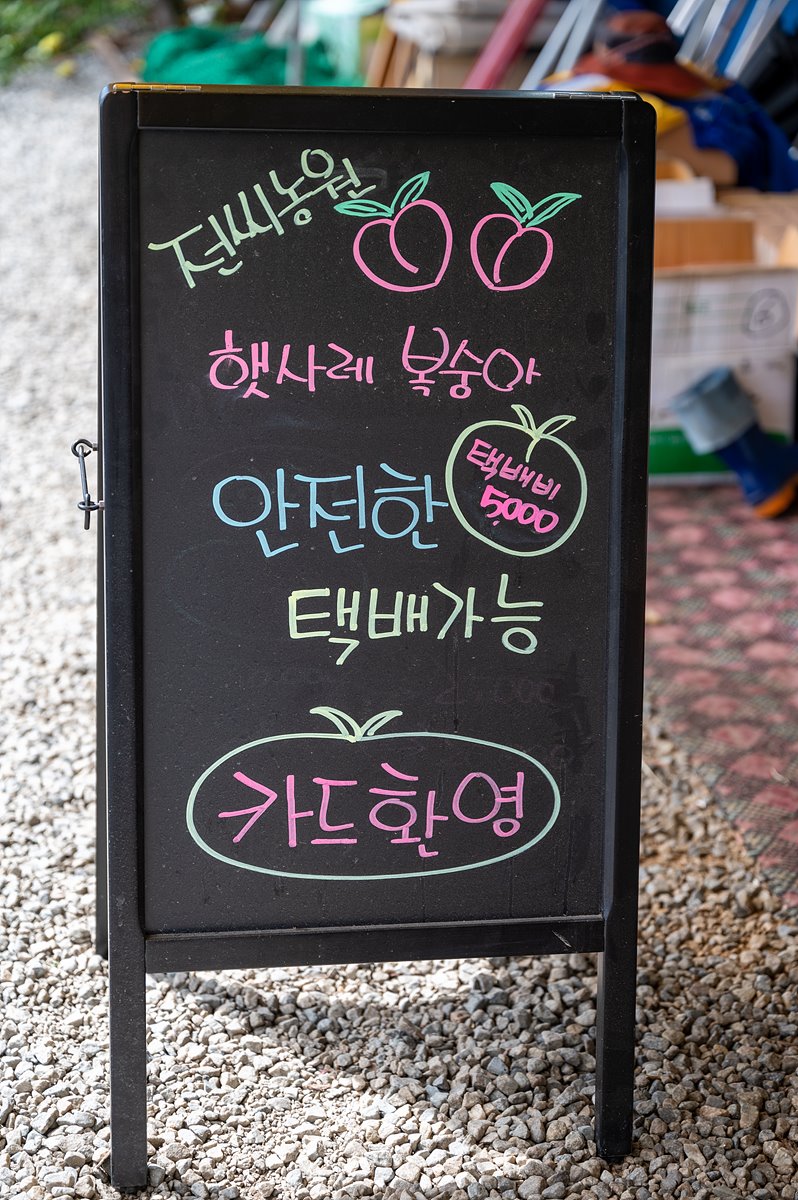 전씨농원
햇사레 복숭아
안전한
택배비
5,000
택배가능
카드환영